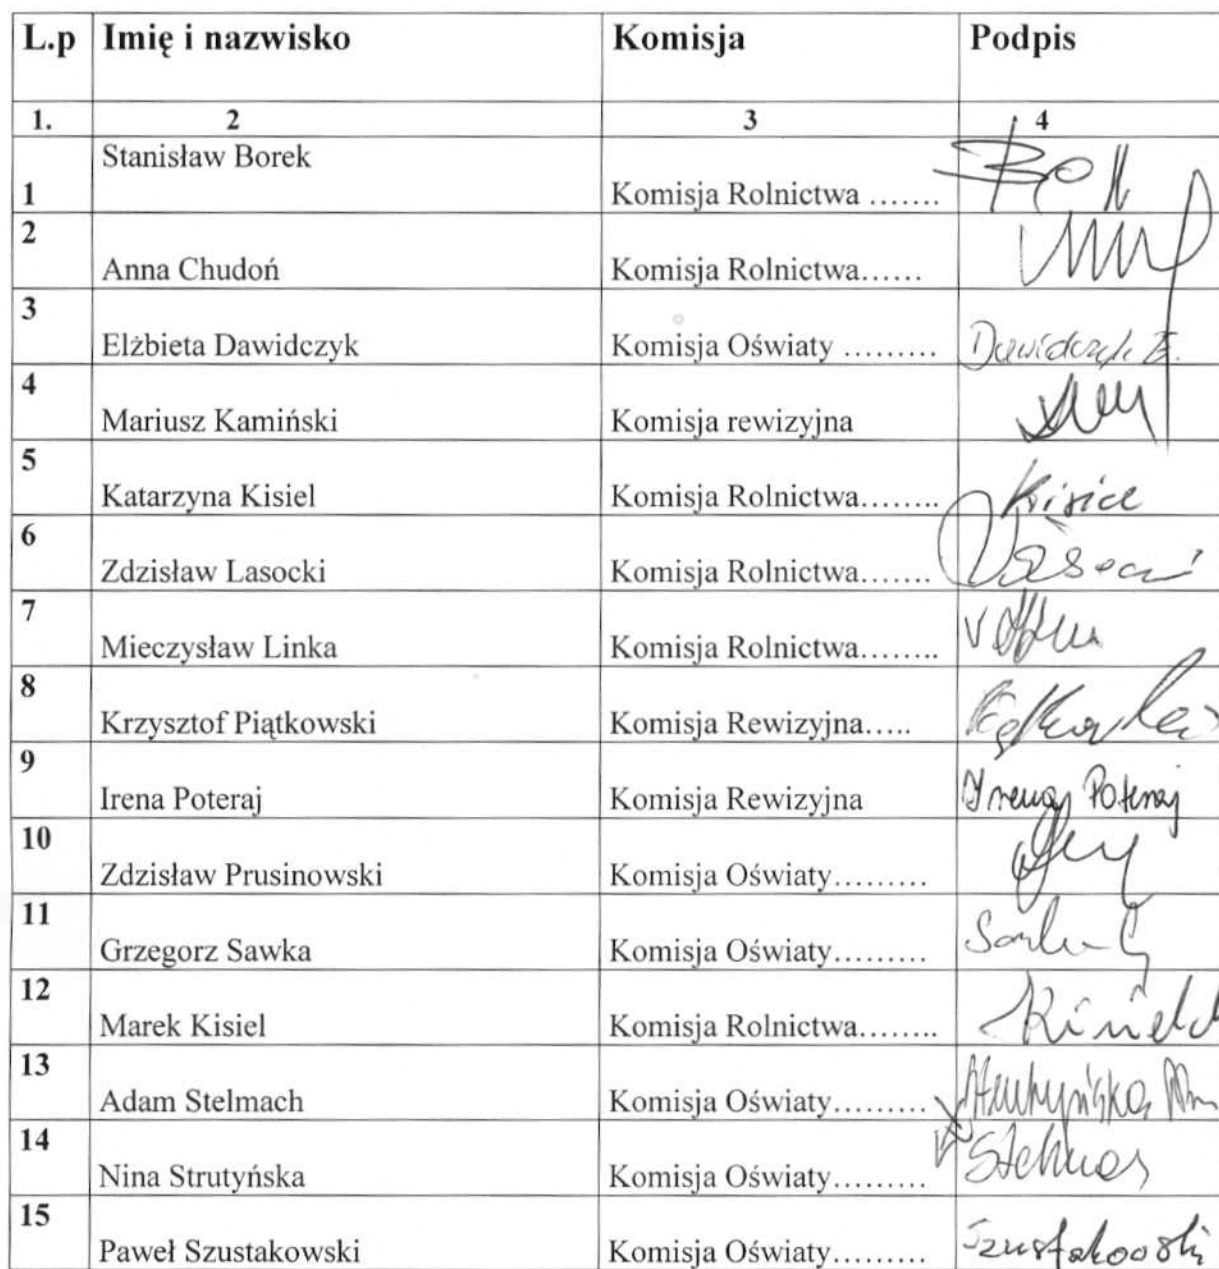 L.p Imię i nazwisko Komisja Podpis
1. 2 3 4
Stanisław Borek
1 Komisja Rolnictwa .......
2
Anna Chudoń Komisja Rolnictwa......
3
Elżbieta Dawidczyk Komisja Oświaty ......... Dawidczyk E.
4
Mariusz Kamiński Komisja rewizyjna
5
Katarzyna Kisiel Komisja Rolnictwa........ Kisiel
6
Zdzisław Lasocki Komisja Rolnictwa.......
7
Mieczysław Linka Komisja Rolnictwa........
8
Krzysztof Piątkowski Komisja Rewizyjna.....
9
Irena Poteraj Komisja Rewizyjna Irena Poteraj
10
Zdzisław Prusinowski Komisja Oświaty.........
11
Grzegorz Sawka Komisja Oświaty.........
12
Marek Kisiel Komisja Rolnictwa........ Kisiel
13
Adam Stelmach Komisja Oświaty......... Strutyńska
14
Nina Strutyńska Komisja Oświaty......... Stelmach
15
Paweł Szustakowski Komisja Oświaty......... Szustakowski